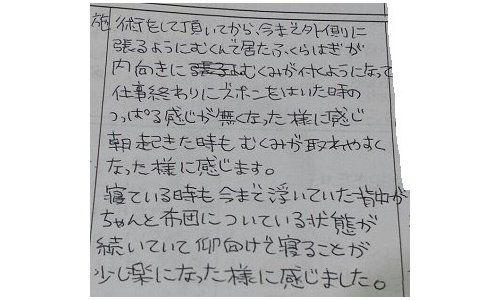 施術をして頂いてから、今まで外側に
張るようにむくんで居たふくらはぎが
内向きにむくみが付くようになって
仕事終わりにズボンをはいた時の
つっぱる感じが無くなった様に感じ
朝起きた時もむくみが取れやすく
なった様に感じます。
寝ている時も今まで浮いていた背中が
ちゃんと布団についている状態が
続いていて仰向けで寝ることが
少し楽になった様に感じました。